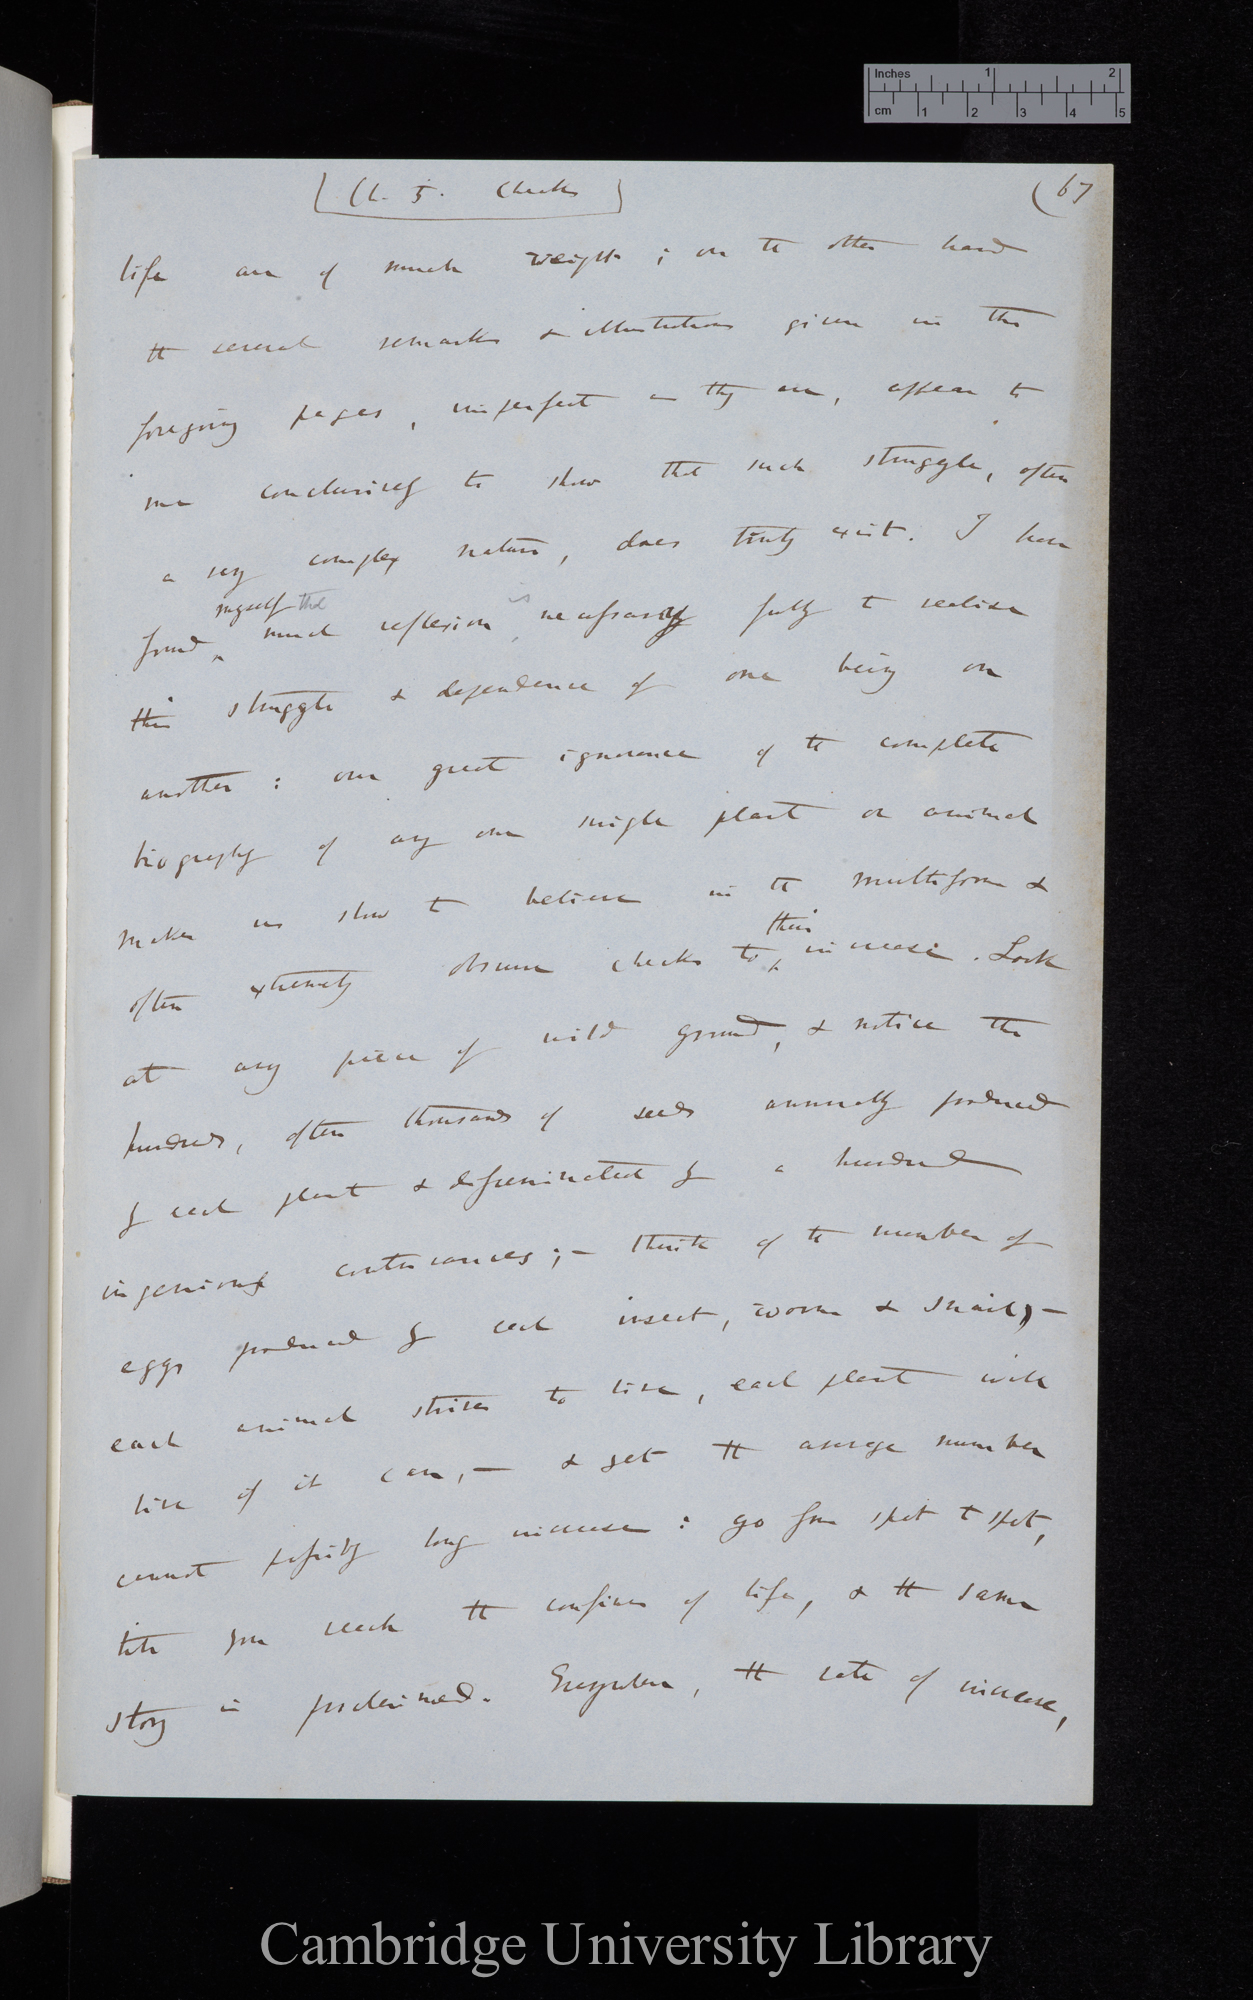 Inches 1 2
cm 1 2 3 4 5
Ch. 5. Checks (67
life are of much weight; on the other hand
the several remarks & illustrations given in the
foregoing pages, imperfect as they are, appear to
me conclusively to show that such struggle, often
a very complex nature, does truly exist. I have
myself that is
found, much reflexion, necessary fully to realise
this struggle & dependence of one being on
another: our great ignorance of the complete
biography of any one single plant or animal
makes us slow to believe in the multiform &
their
often extremely obscure checks to increase. Look
at any piece of wild ground, & notice the
hundreds, often thousands of seeds annually produced
by each plant & disseminated by a hundred
ingenious contrivances;— think of the number of
eggs produced by each insect, worm & snail,—
each animal strives to live, each plant will
live if it can,— & yet the average number
cannot possibly long increase: go from spot to spot,
till you reach the confines of life, & the same
story is proclaimed. Everywhere, the rate of increase,
Cambridge University Library